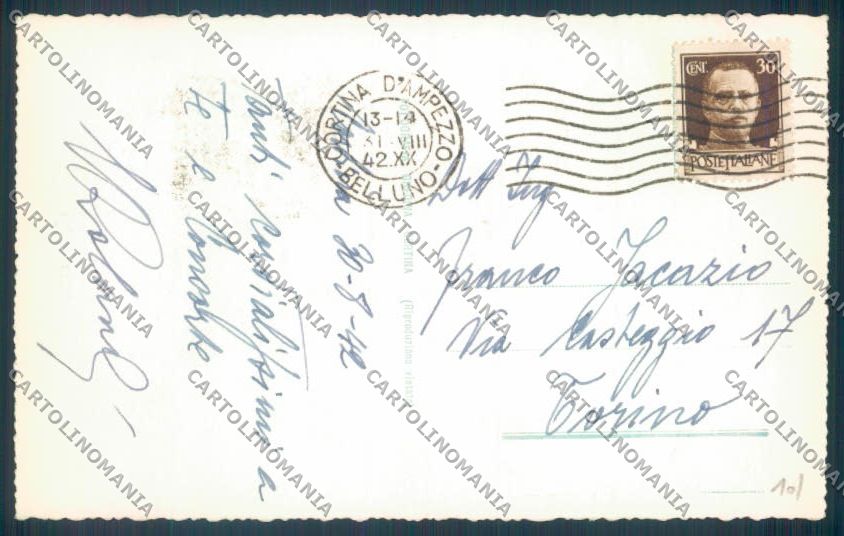 CORTINA D'AMPEZZO
13-14
31.VIII
42.XX
BELLUNO
CENT. 30
POSTE ITALIANE
30-8-42
Tanti cordialissimi a
Te e Consorte
Dott Ing
Franco Jacazio
Via Casteggio 17
Torino
(Riproduzione vietata)
10/
CARTOLINOMANIA